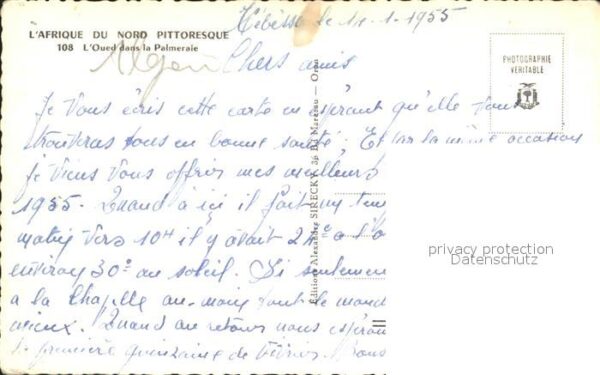 Tébessa le 11.1.1955
L'AFRIQUE DU NORD PITTORESQUE
108 L'Oued dans la Palmeraie
PHOTOGRAPHIE
VÉRITABLE
Alger
Chers amis
Je vous écris cette carte en espérant qu'elle vous
trouveras tous en bonne santé; Et par la même occasion
je viens vous offrir mes meilleurs
1955. Quand à ici il fait un tem
matin vers 10H il y avait 24° à l'o
environ 30° au soleil. Si seulemen
a la Chapelle au moins tout le mond
mieux. Quand au retour nous espéron
la première quinzaine de février. Nous
Éditions Alexandre SIRECKY, 36 Bd Marceau - Oran
privacy protection
Datenschutz